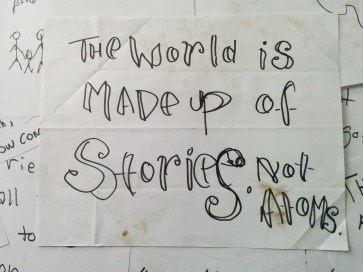 THE WORLD iS
MADE UP of
StorieS. Not
Atoms.
ow con
rie
all
to